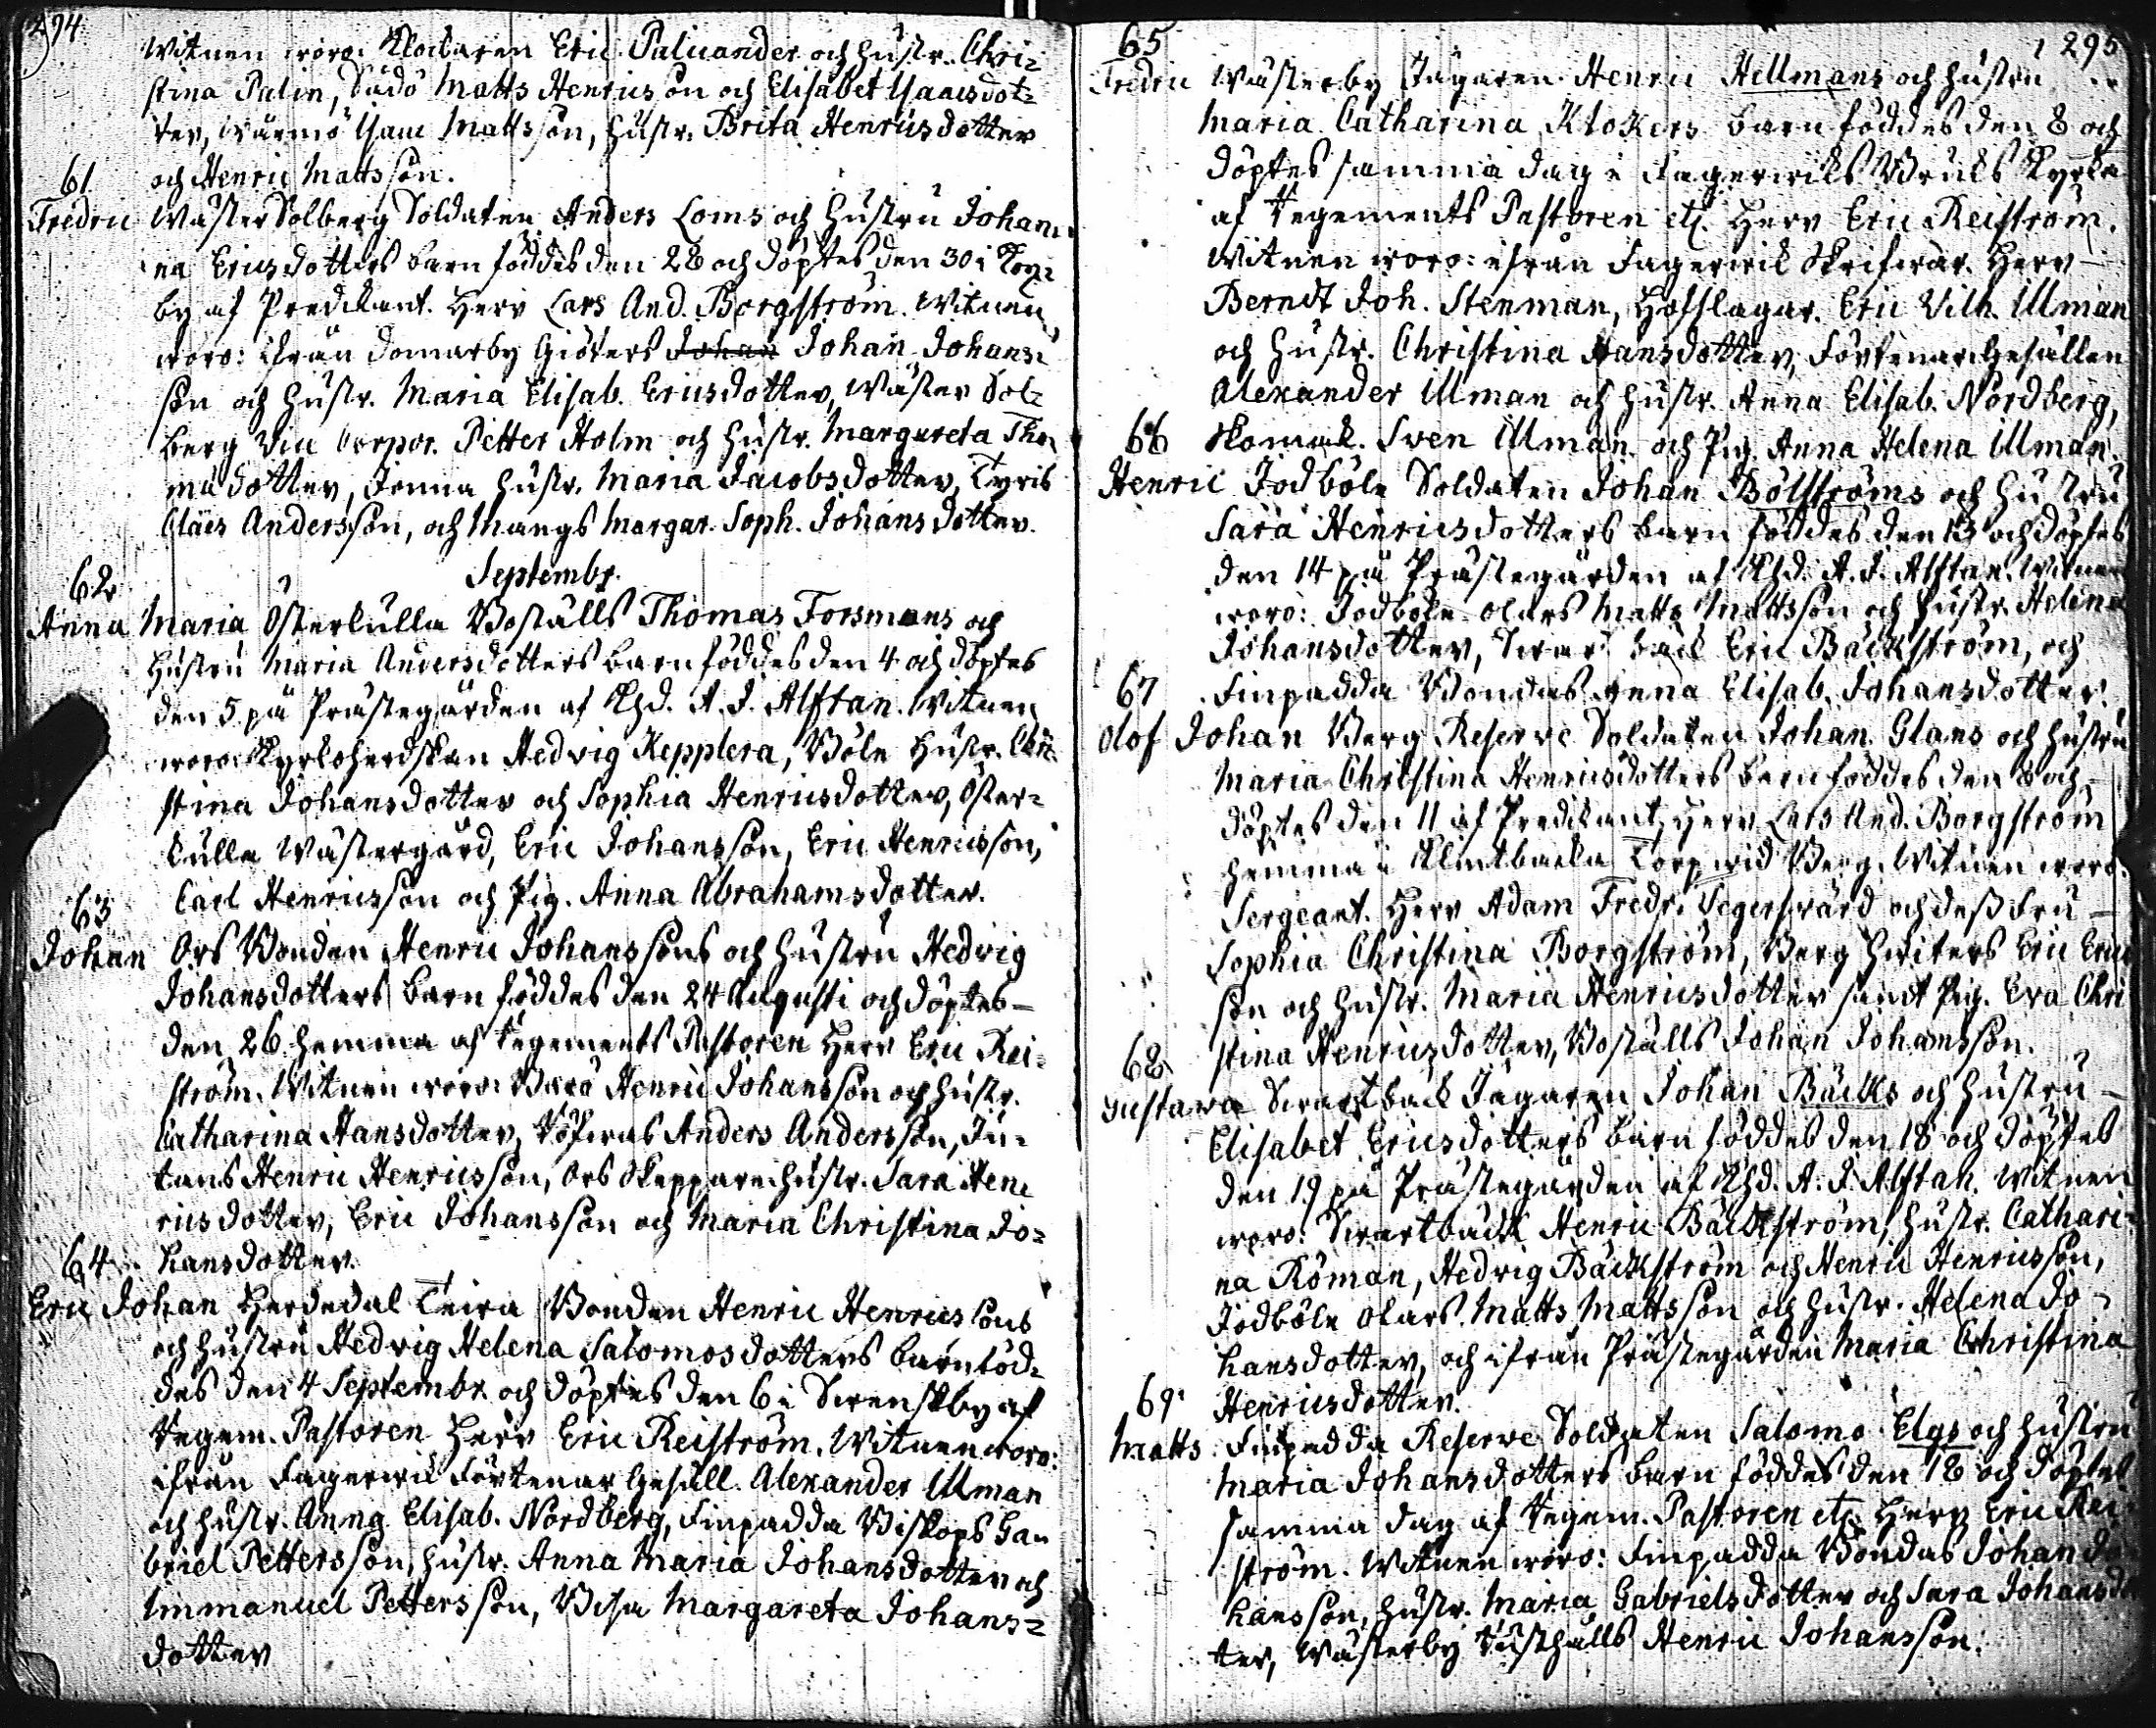 294
Witnen woro: Klockaren Eric Paluander och hustr. Chri=
stina Palin, Sådö Matts Henricsson och Elisabet Isaacsdot=
ter, Wärmö Isaac Mattsson, hustr. Brita Henricsdotter
och Henric Mattsson.
61
Fredric Wäster Solberg Soldaten Anders Loms och hustru Johan=
na Ericsdotters barn föddes den 28 och döptes den 30 i
by af Predikant. Herr Lars And. Borgström. Witnen
woro: ifrån Domarby Giöters Johan Johan Johans=
son och hustr. Maria Elisab. Ericsdotter, Wäster Sol=
berg Vice Corpor. Petter Holm och hustr. Margareta Tho=
madotter, hustr. Maria Jacobsdotter,
Claës Andersson, och Mangs Margar. Soph. Johansdotter.
Septembr.
62
Anna Maria Österkulla Boställs Thomas Forsmans och
hustru Maria Andersdotters barn föddes den 4 och döptes
den 5 på Prästegården af Khd. A. J. Alftan. Witnen
woro Kyrkoherdskan Hedvig Kepplera, Böle hustr. Chri=
stina Johansdotter och Sophia Henricsdotter, Öster=
kulla Wästergård, Eric Johansson, Eric Henricsson,
Carl Henricsson och Pig. Anna Abrahamsdotter.
63
Johan Ors Bonden Henric Johanssons och hustru Hedvig
Johansdotters barn föddes den 24 Augusti och döptes
den 26 hemma af Regements Pastoren Herr Eric Rei=
ström. Witnen woro: Barö Henric Johansson och hustr.
Catharina Hansdotter, Anders Andersson,
Henric Henricsson, Ors Skepparehustr. Sara Hen=
ricsdotter, Eric Johansson och Maria Christina Jo=
hansdotter.
64
Eric Johan Herdedal Bonden Henric Henricssons
och hustru Hedvig Helena Salomosdotters barn föd=
des den 4 Septembr. och döptes den 6 i Swenskby af
Regem. Pastoren Herr Eric Reiström. Witnen woro:
ifrån Fagerwik Förtenar Gesäll. Alexander Ulman
och hustr. Anna Elisab. Nordberg, Finpadda Biskops Ga=
briel Pettersson, hustr. Anna Maria Johansdotter och
Immanuel Pettersson, Margareta Johans=
dotter
295
65
Fredric Wästerby Jägaren Henric Hellmans och hustru
Maria Catharina Klokers barn föddes den 8 och
döptes samma dag i Fagerwiks Bruks Kyrka
af Regements Pastoren etc. Herr Eric Reiström.
Witnen woro: ifrån Fagerwik Skrifwar. Herr
Berndt Joh. Stenman, Hofslagar. Eric Vilh. Ulman
och hustr. Christina Hansdotter, Förtenaregesällen
Alexander Ulman och hustr. Anna Elisab. Nordberg,
Skomak. Sven Ulman och Pig. Anna Helena Ulman.
66
Henric Jodböle Soldaten Johan Bölströms och hustru
Sara Henricsdotters barn föddes den 13 och döptes
den 14 på Prästegården af Khd. A. J. Alftan. Witnen
woro: Jodböle Olars Matts Mattsson och hustr. Helena
Johansdotter, Swartbäck Eric Bäckström, och
Finpadda Bondas Anna Elisab. Johansdotter.
67
Olof Johan Berg Reserve Soldaten Johan Glans och hustru
Maria Christina Henricsdotters barn föddes den 8 och
döptes den 11 af Predikant. Herr Lars And. Borgström
hemma i Klintbacka Torp wid Berg. Witnen woro:
Sergeant. Herr Adam Fredr. Segerswärd och dess Fru
Sophia Christina Borgström, Berg Hwiters Eric Erics
son och hustr. Maria Henricsdotter samt Pig. Eva Chri
stina Henricsdotter, Boställs Johan Johansson.
68
Gustawa Swartbäck Jägaren Johan Bäcks och hustru
Elisabet Ericsdotters barn föddes den 18 och döptes
den 19 på Prästegården af Khd. A. J. Alftan. Witnen
woro: Swartbäck Henric Bäckström, hustr. Cathari=
na Röman, Hedvig Bäckström och Henric Henricsson,
Jodböle Olars Matts Mattsson och hustr. Helena Jo=
hansdotter, och ifrån Prästegården Maria Christina
Henricsdotter.
69
Matts Finpadda Reserve Soldaten Salomo Elgs och hustru
Maria Johansdotters barn föddes den 18 och döptes
samma dag af Regem. Pastoren etc. Herr Eric Rei
ström. Witnen woro: Finpadda Bondas Johan Jo
hansson, hustr. Maria Gabrielsdotter och Sara Johansdot
ter, Wästerby Rusthålls Henric Johansson.